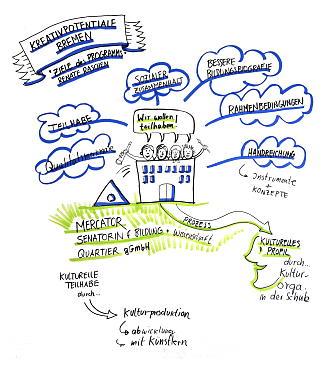 KREATIVPOTENTIALE
BREMEN
"ZIELE des PROGRAMMS"
RENATE RASCHEN
SOZIALER
ZUSAMMENHALT
BESSERE
BILDUNGSBIOGRAFIE
RAHMENBEDINGUNGEN
TEILHABE
Wir wollen
teilhaben
HANDREICHUNG
Instrumente
+
KONZEPTE
PROZESS
MERCATOR
SENATORIN f BILDUNG + Wissenschaft
QUARTIER gGmbH
KULTURELLES
PROFIL
durch...
Kultur-
orga.
in der Schule
KULTURELLE
TEILHABE
durch...
Kulturproduktion
abwicklung
mit Künstlern